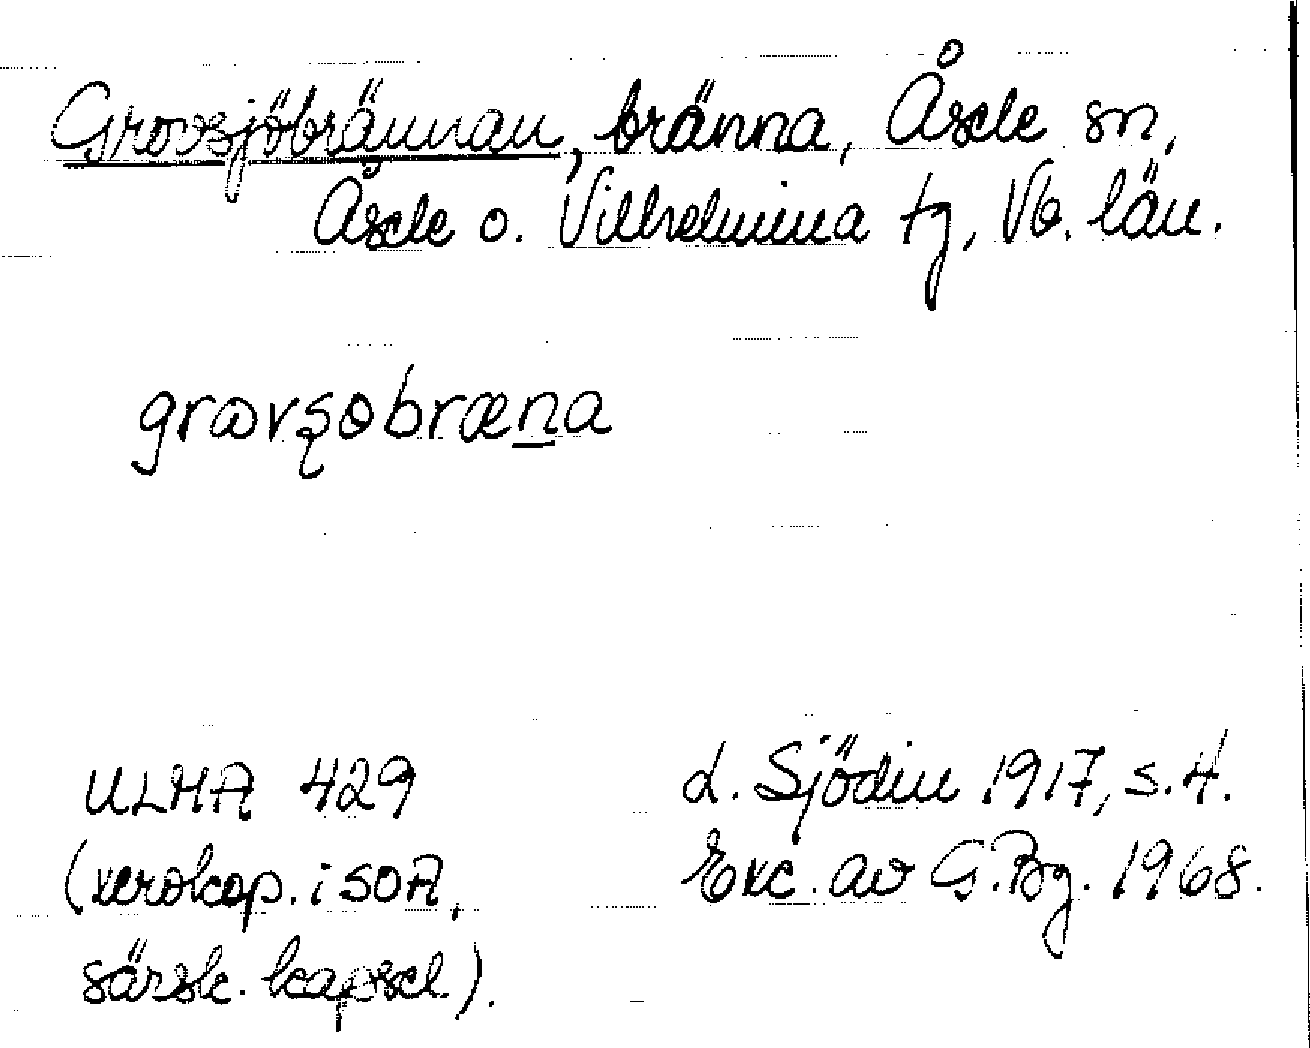 Grovsjöbrännan, bränna, Åsele sn,
Åsele o. Vilhelmina tg, Vb. län.
gravşobræna
ULMA 429
L. Sjödin 1917, s. 4.
(xerokop. i SOA,
Exc. av G. Bg. 1968.
särsk. kapsel).